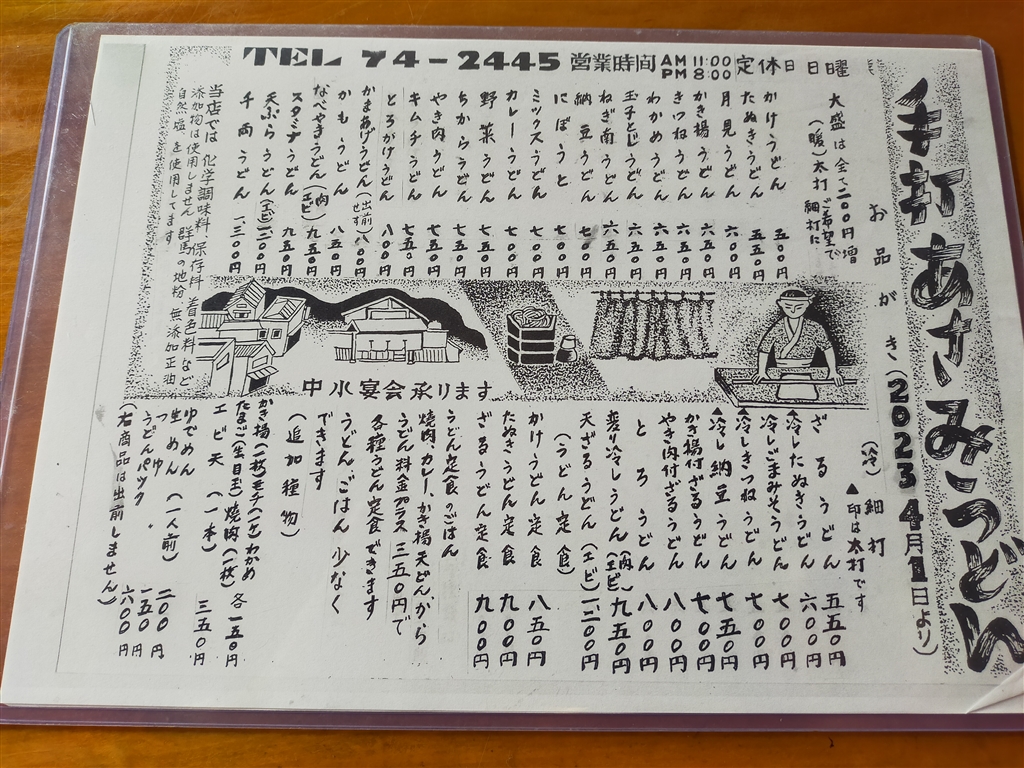 手打あさみうどん
お品がき(2023 4月1日より)
TEL 74-2445 営業時間 AM 11:00 PM 8:00 定休日 日曜
大盛は全て二〇〇円増
(暖)太打 ご希望で細打に
かけうどん 五五〇円
たぬきうどん 五五〇円
月見うどん 六〇〇円
かき揚うどん 六五〇円
きつねうどん 六五〇円
わかめうどん 六五〇円
玉子とじうどん 六五〇円
ねぎ南うどん 六五〇円
納豆うどん 七〇〇円
にぼうと 七〇〇円
ミックスうどん 七〇〇円
カレーうどん 七〇〇円
野菜うどん 七五〇円
ちからうどん 七五〇円
やき肉うどん 七五〇円
キムチうどん 七五〇円
とろがけうどん 八〇〇円
かまあげうどん(出前せず) 八〇〇円
かもうどん 八五〇円
なべやきうどん(肉 エビ) 九五〇円
スタミナうどん 九五〇円
天ぷらうどん(エビ) 一二〇〇円
千両うどん 一三〇〇円
当店では 化学調味料 保存料 着色料など
添加物は使用しません 群馬の地粉 無添加正油
自然塩を使用してます
中小宴会承ります
(冷) 細打
▲印は太打です
ざるうどん 五五〇円
▲冷したぬきうどん 六〇〇円
冷しごまみそうどん 七〇〇円
▲冷しきつねうどん 七〇〇円
▲冷し納豆うどん 七五〇円
かき揚付ざるうどん 七〇〇円
やき肉付ざるうどん 八〇〇円
とろうどん 八〇〇円
変り冷しうどん(肉 エビ) 九五〇円
天ざるうどん(エビ) 一二〇〇円
(うどん定食)
かけうどん定食 八五〇円
たぬきうどん定食 九〇〇円
ざるうどん定食 九〇〇円
うどん定食のごはん
焼肉、カレー、かき揚天どんから
うどん料金プラス三五〇円で
各種うどん定食できます
うどん、ごはん少なく
できます
(追加種物)
かき揚(一枚)モチ(一ケ)わかめ
たまご(生目玉)焼肉(一枚) 各一五〇円
エビ天(一本) 三五〇円
ゆでめん
生めん(一人前) 二〇〇円
つゆ 〃 一五〇円
うどんパック 六〇〇円
(右商品は出前しません)